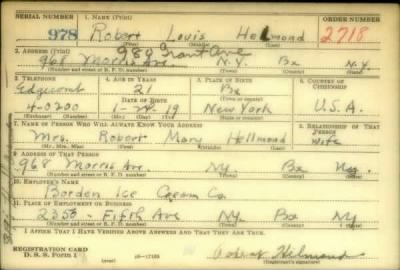 SERIAL NUMBER 1. NAME (Print) ORDER NUMBER
978 Robert Louis Helmond 2718
(First) (Middle) (Last)
2. ADDRESS (Print) 980 Grant Ave
968 Morris Ave. N.Y. Bx N.Y.
(Number and street or R. F. D. number) (Town) (County) (State)
3. TELEPHONE 4. AGE IN YEARS 5. PLACE OF BIRTH 6. COUNTRY OF CITIZENSHIP
Edgecomb 21 Bx
DATE OF BIRTH
4-0700 1-24-19 New York U.S.A.
7. NAME OF PERSON WHO WILL ALWAYS KNOW YOUR ADDRESS 8. RELATIONSHIP OF THAT PERSON
Mrs. Robert Mary Hellmond Wife
(Mr., Mrs., Miss) (First) (Middle) (Last)
9. ADDRESS OF THAT PERSON
968 Morris Ave NY Bx
(Number and street or R. F. D. number) (Town) (County) (State)
10. EMPLOYER'S NAME
Borden Ice Cream Co
11. PLACE OF EMPLOYMENT OR BUSINESS
2350 - Fifth Ave NY. Bx NY
(Number and street or R. F. D. number) (Town) (County) (State)
I AFFIRM THAT I HAVE VERIFIED ABOVE ANSWERS AND THAT THEY ARE TRUE.
REGISTRATION CARD
D. S. S. Form 1 16-17105 (Registrant's signature)